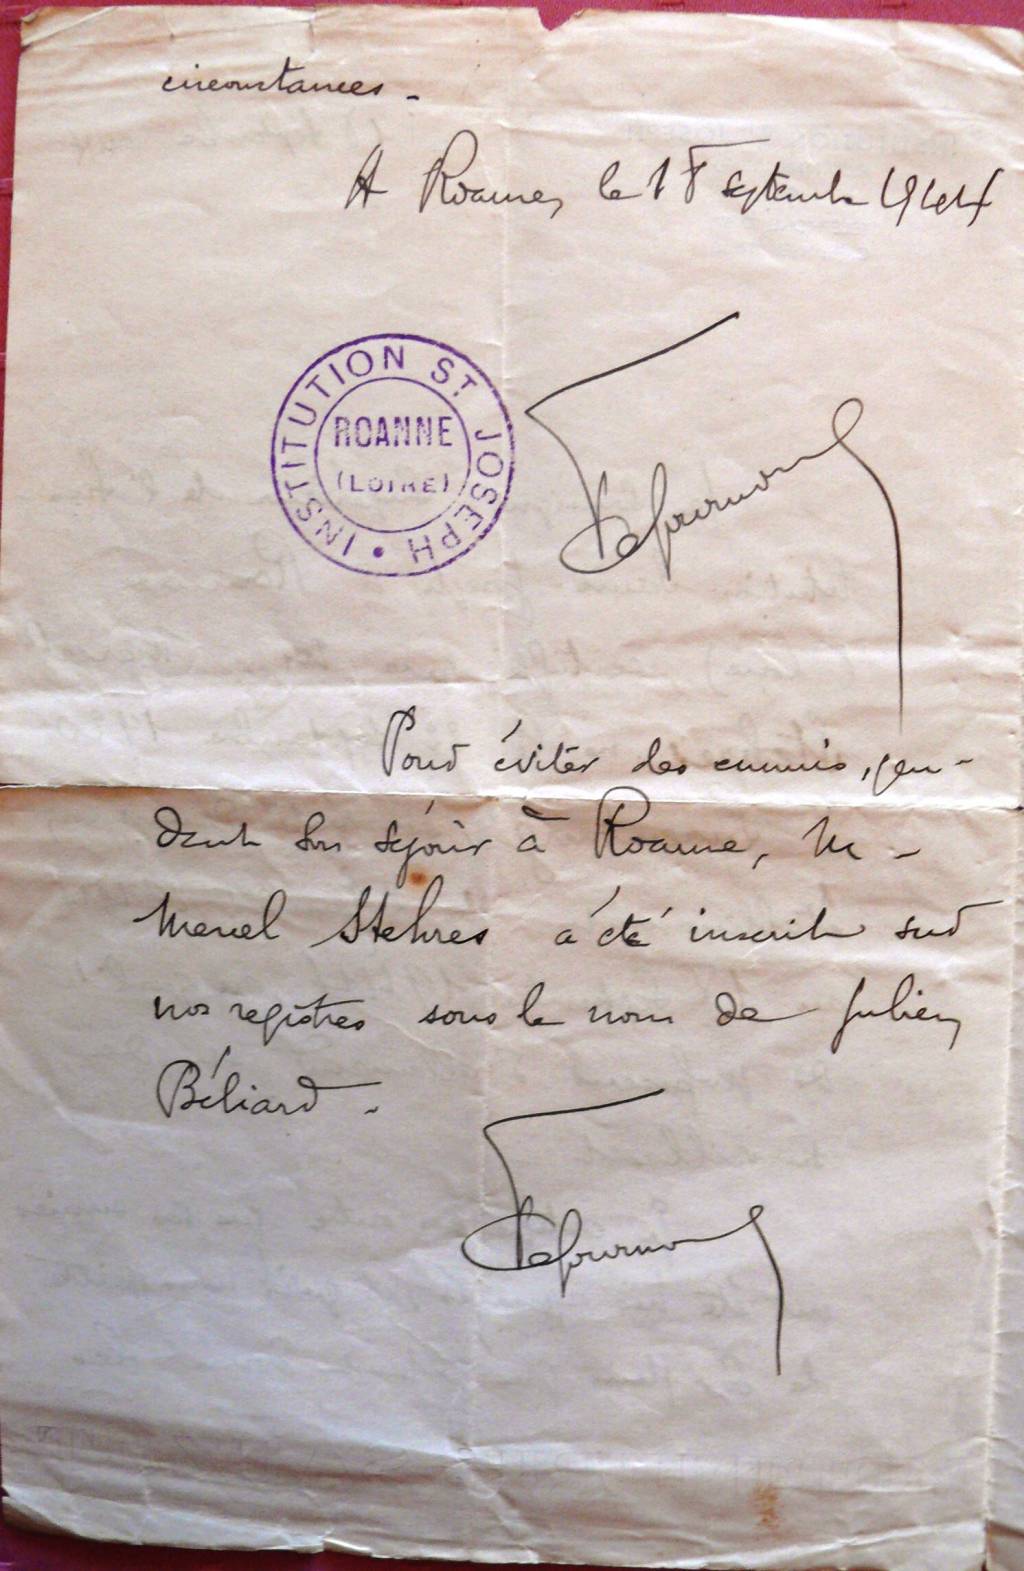 circonstances.
A Roanne, le 18 septembre 1944
INSTITUTION ST JOSEPH
ROANNE
(LOIRE)
Pour éviter des ennuis, pen-
dant son séjour à Roanne, M.
Marcel Stehres a été inscrit sur
nos registres sous le nom de Julien
Béliard.